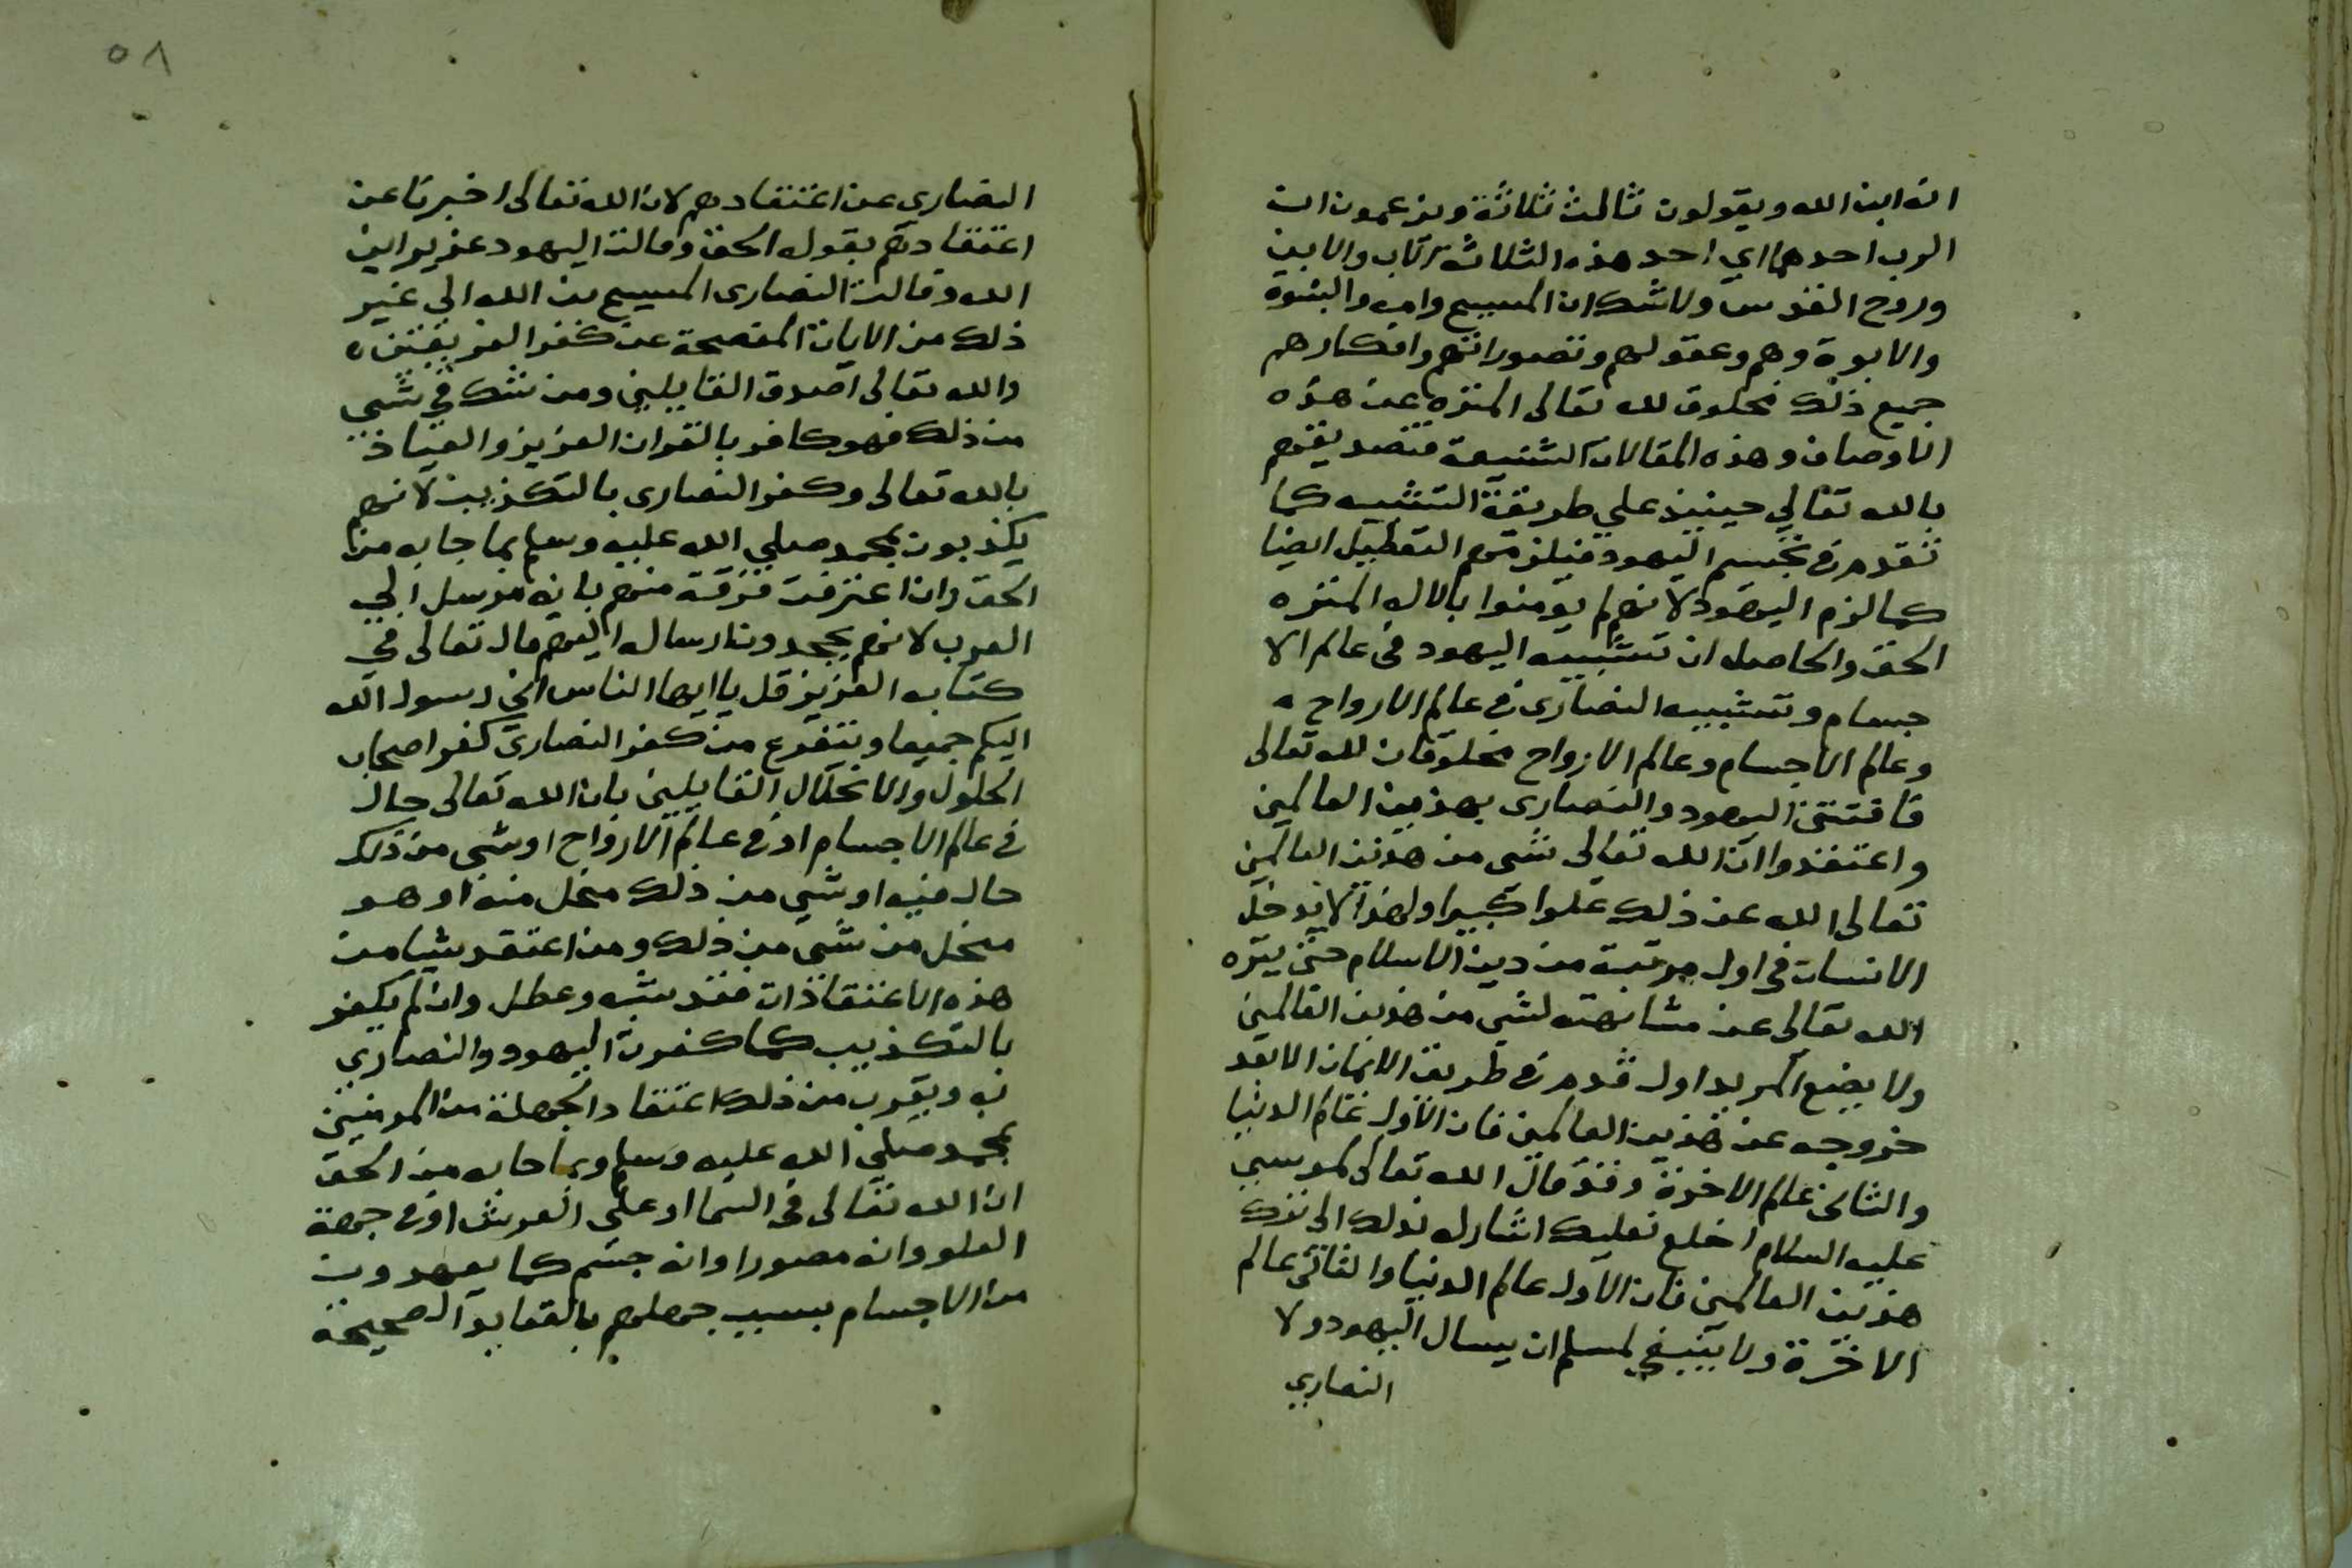 انه ابن الله ويقولون ثالث ثلاثة ويزعمون ان
الرب احدهما اي احد هذه الثلاثة الاب والابن
وروح القدس ولا شك ان المسيح وامه والبنوة
والابوة وهم وعقولهم وتصوراتهم وافكارهم
جميع ذلك مخلوق لله تعالى المنزه عن هذه
الاوصاف وهذه المقالات الشنيعة فتصديقهم
بالله تعالى حينيذ على طريقة التشبيه كما
تقدم في تجسيم اليهود فيلزمهم التعطيل ايضا
كما لزم اليهود لانهم لم يؤمنوا بالاله المنزه
الحق والحاصل ان تشبيه اليهود في عالم الا
جسام وتشبيه النصارى في عالم الارواح
وعالم الاجسام وعالم الارواح مخلوقان لله تعالى
فافتتن اليهود والنصارى بهذين العالمين
واعتقدوا ان الله تعالى شي من هذين العالمين
تعالى الله عن ذلك علوا كبيرا ولهذا لا يدخل
الانسان في اول مرتبة من دين الاسلام حتى ينزه
الله تعالى عن مشابهته لشي من هذين العالمين
ولا يضع المريد اول قدم في طريق الايمان الا بعد
خروجه عن هذين العالمين فان الاول عالم الدنيا
والثاني عالم الاخرة وقد قال الله تعالى لموسي
عليه السلام اخلع نعليك اشار له بذلك الى ترك
هذين العالمين فان الاول عالم الدنيا والثاني عالم
الاخرة ولا ينبغي لمسلم ان يسال اليهود ولا
النصاري
٥٨
النصارى عن اعتقادهم لان الله تعالى اخبرنا عن
اعتقادهم بقوله الحق وقالت اليهود عزير ابن
الله وقالت النصارى المسيح بن الله الى غير
ذلك من الايات المفصحة عن كفر الفريقين ه
والله تعالى اصدق القايلين ومن شك في شي
من ذلك فهو كافر بالقران العزيز والعياذ
بالله تعالى وكفر النصارى بالتكذيب لانهم
يكذبون بمحمد صلى الله عليه وسلم بما جا به من
الحق وان اعترفت فرقة منهم بانه مرسل الى
العرب لانهم يجحدون ارساله اليهم قال تعالى في
كتابه العزيز قل يا ايها الناس اني رسول الله
اليكم جميعا ويتفرع من كفر النصارى كفر اصحاب
الحلول والانحلال القايلين بان الله تعالى حال
في عالم الاجسام او في عالم الارواح او شي من ذلك
حال فيه او شي من ذلك منحل منه او هو
منحل من شي من ذلك ومن اعتقد شيا من
هذه الاعتقادات فقد شبه وعطل وان لم يكفر
بالتكذيب كما كفرت اليهود والنصاري
به ويقرب من ذلك اعتقاد الجهلة من المومنين
بمحمد صلى الله عليه وسلم وبما جا به من الحق
ان الله تعالى في السما او على العرش او في جهة
العلو وانه مصور او انه جسم كما يعهدون
من الاجسام بسبب جهلهم بالعقايد الصحيحة